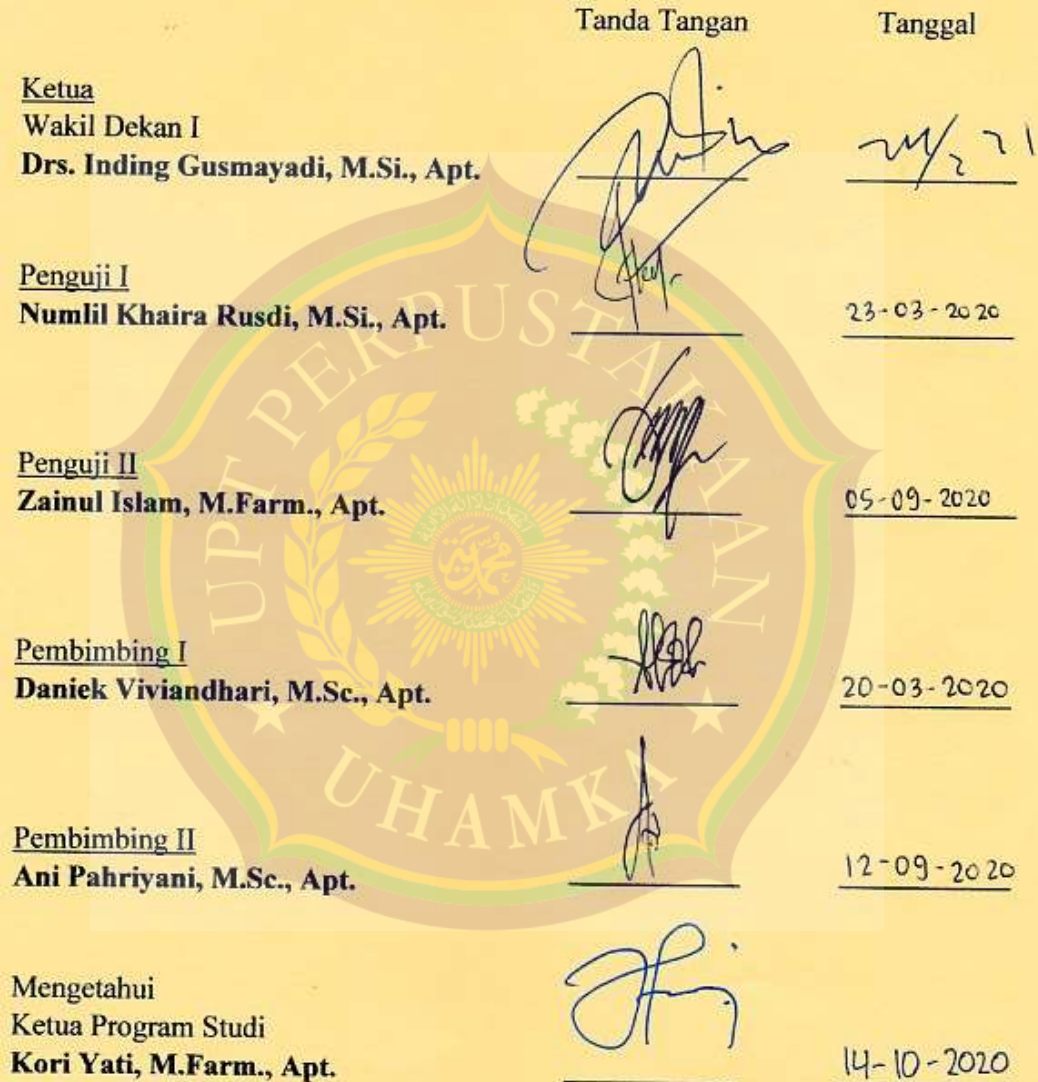 Tanda Tangan Tanggal
Ketua
Wakil Dekan I
Drs. Inding Gusmayadi, M.Si., Apt.
Penguji I
Numlil Khaira Rusdi, M.Si., Apt. 23-03-2020
Penguji II
Zainul Islam, M.Farm., Apt. 05-09-2020
Pembimbing I
Daniek Viviandhari, M.Sc., Apt. 20-03-2020
Pembimbing II
Ani Pahriyani, M.Sc., Apt. 12-09-2020
Mengetahui
Ketua Program Studi
Kori Yati, M.Farm., Apt. 14-10-2020
UPT PERPUSTAKAAN
UHAMKA